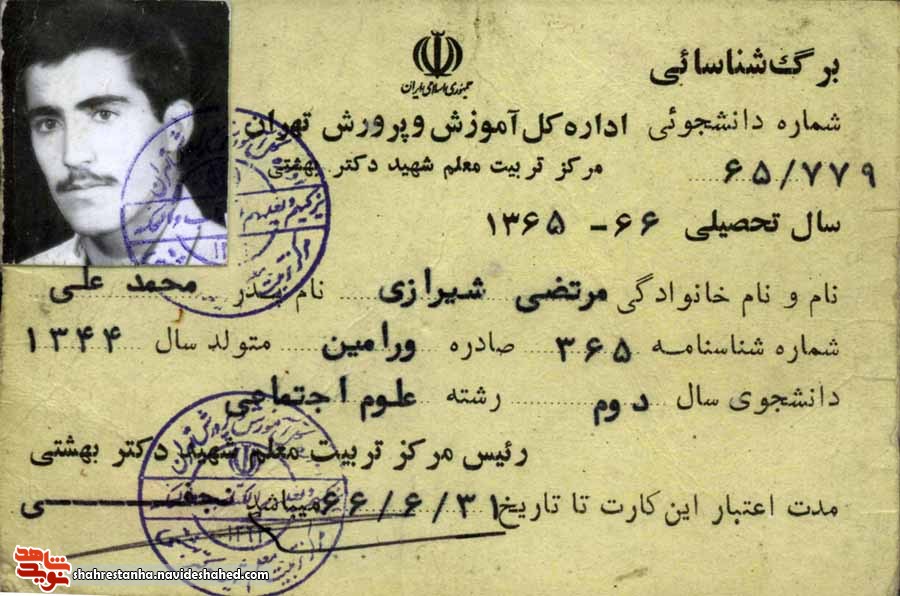 برگ شناسائی
جمهوری اسلامی ایران
شماره دانشجوئی اداره کل آموزش و پرورش تهران
۶۵/۷۷۹ مرکز تربیت معلم شهید دکتر بهشتی
سال تحصیلی ۶۶ - ۱۳۶۵
نام و نام خانوادگی مرتضی شیرازی نام پدر محمد علی
شماره شناسنامه ۳۶۵ صادره ورامین متولد سال ۱۳۴۴
دانشجوی سال دوم رشته علوم اجتماعی
رئیس مرکز تربیت معلم شهید دکتر بهشتی
مدت اعتبار این کارت تا تاریخ ۶۶/۶/۳۱ میباشد نجفی
نوید شاهد
shahrestanha.navideshahed.com